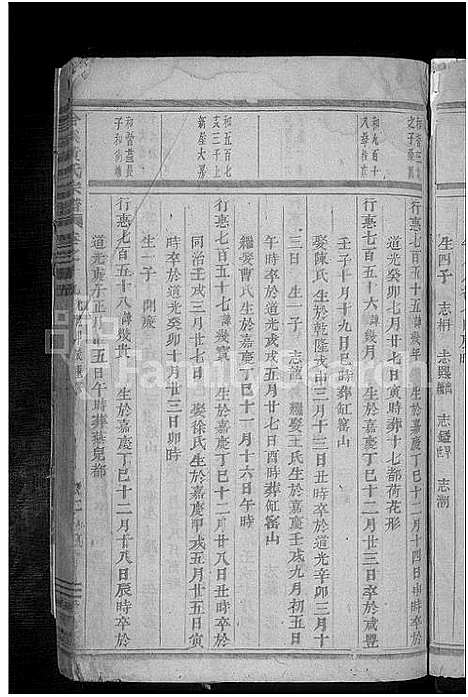 生四子 志桐 志興 志 志潮
行惠七百五十五諱幾年 生於嘉慶丁巳十二月十四日申時卒於
道光癸卯七月廿七日寅時葬十七都荷花形
和九百十
八
行惠七百五十六諱幾月 生於嘉慶丁巳十二月廿三日卒於咸豐
壬子十月十九日巳時葬缸窰山
娶陳氏生於乾隆戊申三月十三日丑時卒於道光辛卯三月十
三日 生一子 志 繼娶王氏生於嘉慶壬戌九月初五日
午時卒於道光戊戌五月廿七日酉時葬缸窰山
繼娶曹氏生於嘉慶丁巳十一月十六日午時
和五百七
支三千上
新屋大房
行惠七百五十七諱幾 生於嘉慶丁巳十二月廿八日丑時卒於
同治壬戌三月廿七日 娶徐氏生於嘉慶甲戌五月廿五日寅
時卒於道光癸卯十月廿三日卯時
生一子 開慶
子和
行惠七百五十八諱幾貴 生於嘉慶丁巳十二月廿八日辰時卒於
道光庚子正月廿五日午時葬葉見都